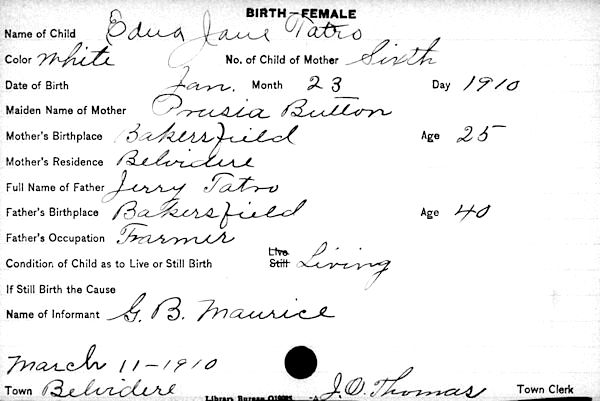 BIRTH—FEMALE
Name of Child Edna Jane Tatro
Color White No. of Child of Mother Sixth
Date of Birth Jan. Month 23 Day 1910
Maiden Name of Mother Prusia Button
Mother's Birthplace Bakersfield Age 25
Mother's Residence Belvidere
Full Name of Father Jerry Tatro
Father's Birthplace Bakersfield Age 40
Father's Occupation Frarmer
Condition of Child as to Live or Still Birth Live Still Living
If Still Birth the Cause
Name of Informant G. B. Maurice
March 11-1910
Town Belvidere J. O. Thomas Town Clerk
Library Bureau